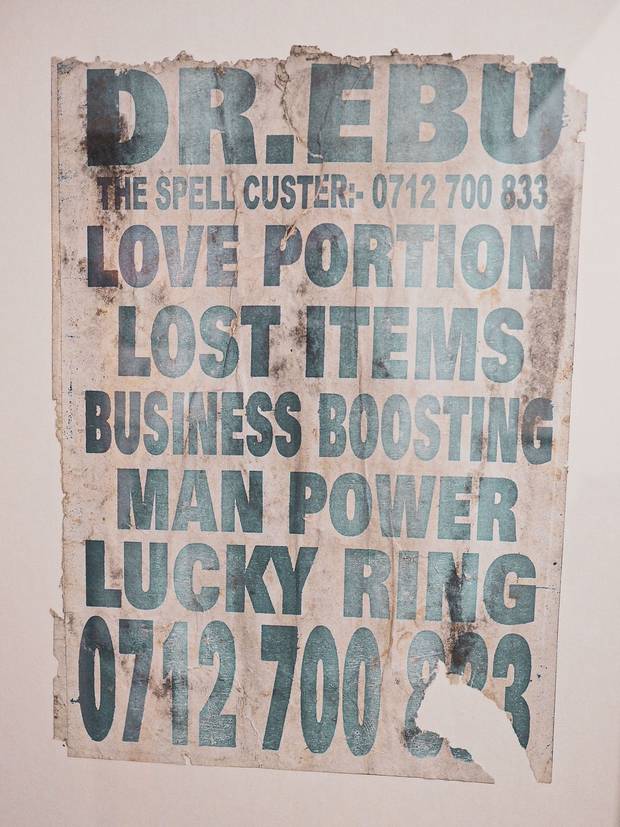 DR.EBU
THE SPELL CUSTER:- 0712 700 833
LOVE PORTION
LOST ITEMS
BUSINESS BOOSTING
MAN POWER
LUCKY RING
0712 700 833